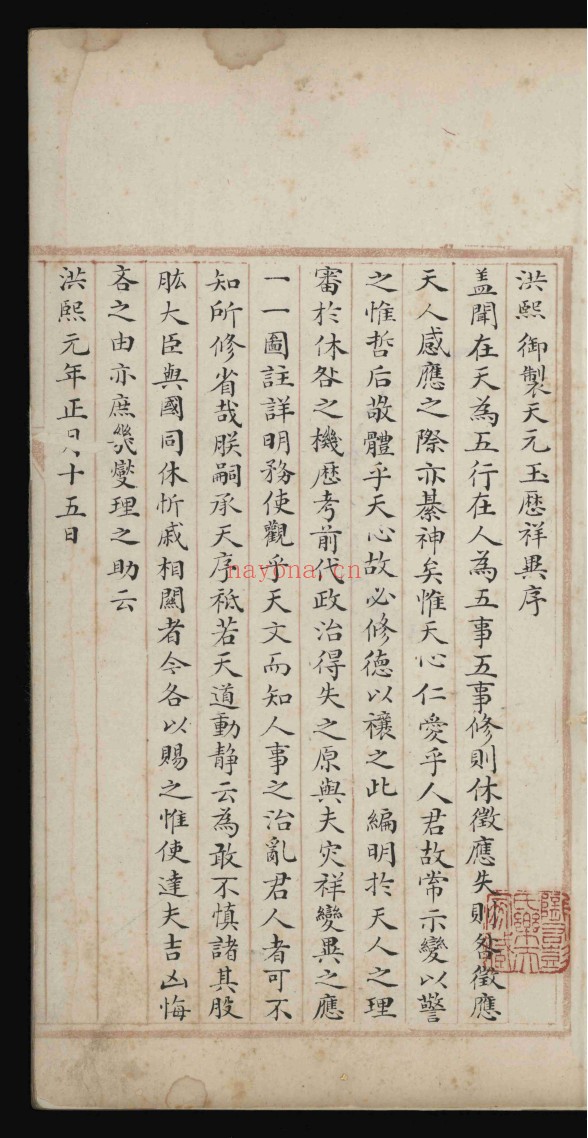 洪熙御製天元玉歷祥異序
蓋聞在天為五行在人為五事五事修則休徵應失則咎徵應
天人感應之際亦綦神矣惟天心仁愛乎人君故常示變以警
之惟哲后敬體乎天心故必修德以禳之此編明於天人之理
審於休咎之機歷考前代政治得失之原與夫灾祥變異之應
一一圖註詳明務使觀乎天文而知人事之治亂君人者可不
知所修省哉朕嗣承天序祗若天道動靜云為敢不慎諸其股
肱大臣與國同休忻戚相關者令各以賜之惟使達夫吉凶悔
吝之由亦庶幾燮理之助云
洪熙元年正月十五日
nayona.cn